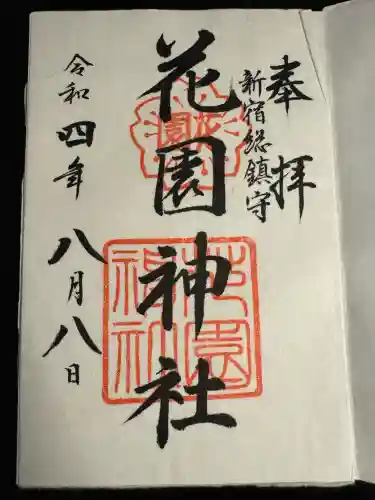 奉拝
新宿総鎮守
花園神社
令和四年八月八日
花園
花園神社